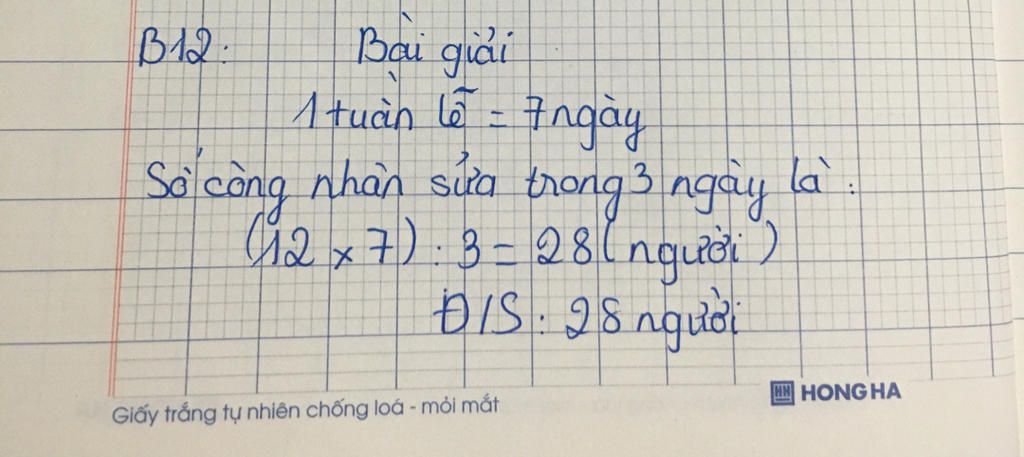 B12: Bài giải
1 tuần lễ = 7 ngày
Số công nhân sửa trong 3 ngày là :
(12 x 7) : 3 = 28 (người)
Đ/S: 28 người
HH HONG HA
Giấy trắng tự nhiên chống loá - mỏi mắt